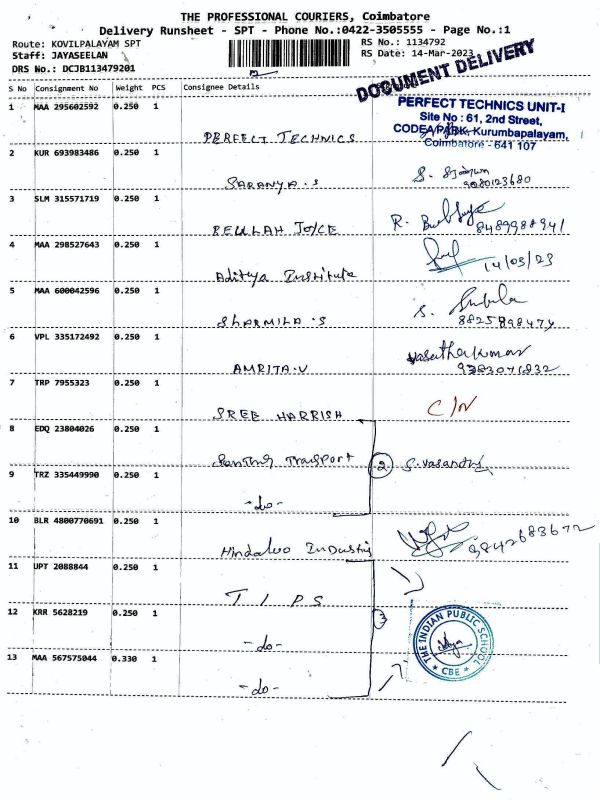 THE PROFESSIONAL COURIERS, Coimbatore
Delivery Runsheet - SPT - Phone No.:0422-3505555 - Page No.:1
Route: KOVILPALAYAM SPT
RS No.: 1134792
Staff: JAYASEELAN
RS Date: 14-Mar-2023
DRS No.: DCJB113479201
DOCUMENT DELIVERY
S No Consignment No Weight PCS Consignee Details
PERFECT TECHNICS UNIT-I
Site No : 61, 2nd Street,
CODEA PARK, Kurumbapalayam,
Coimbatore - 641 107
1 MAA 295602592 0.250 1
PERFECT TECHNICS
2 KUR 693983486 0.250 1
SARANYA.S
9080123680
3 SLM 315571719 0.250 1
BEULAH JOYCE
R.
8489988941
4 MAA 298527643 0.250 1
Aditya Institute
14/03/23
5 MAA 600042596 0.250 1
SHARMILA.S
S.
8825898474
6 VPL 335172492 0.250 1
AMRITA.V
Vasanthakumar
9383071832
7 TRP 7955323 0.250 1
SREE HARRISH
C/N
8 EDQ 23804026 0.250 1
Transport
2 S.Vasandhi
9 TRZ 335449990 0.250 1
-do-
10 BLR 4800770691 0.250 1
Hindalco Industris
9842683672
11 UPT 2088844 0.250 1
T I P S
12 KRR 5628219 0.250 1
-do-
3
13 MAA 567575044 0.330 1
-do-
THE INDIAN PUBLIC SCHOOL
* CBE *